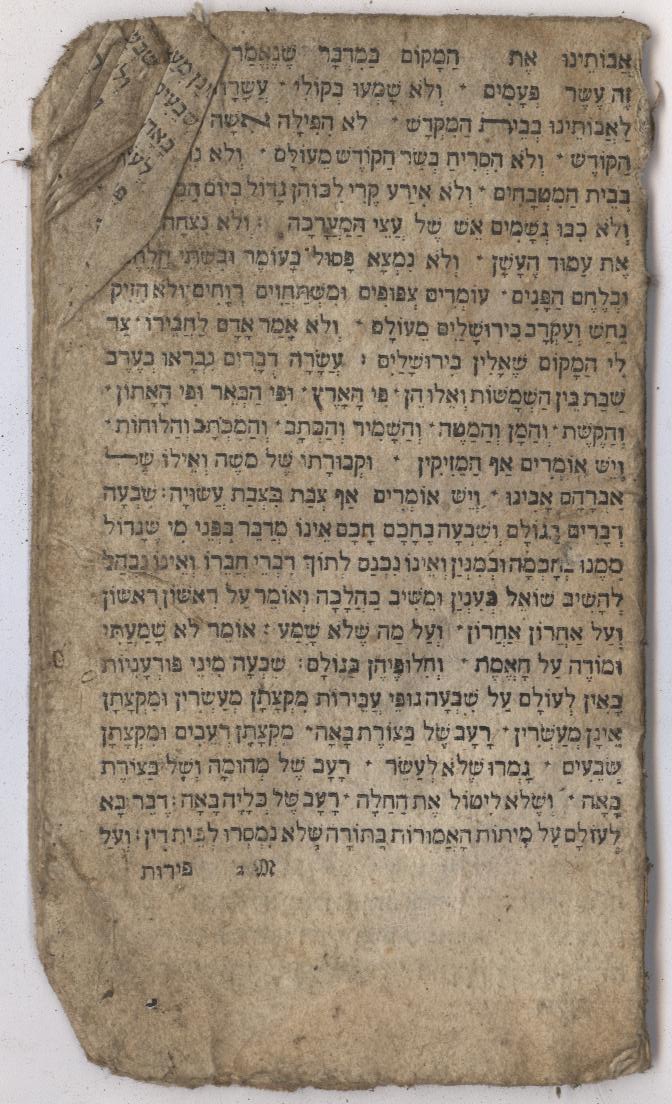 אֲבוֹתֵינוּ אֶת הַמָּקוֹם בַּמִּדְבָּר שֶׁנֶּאֱמַר
זֶה עֶשֶׂר פְּעָמִים · וְלֹא שָׁמְעוּ בְּקוֹלִי · עֲשָׂרָה
לַאֲבוֹתֵינוּ בְּבֵית הַמִּקְדָּשׁ · לֹא הִפִּילָה אִשָּׁה
הַקּוֹדֶשׁ · וְלֹא הִסְרִיחַ בְּשַׂר הַקּוֹדֶשׁ מֵעוֹלָם · וְלֹא
בְּבֵית הַמִּטְבָּחַיִם · וְלֹא אֵירַע קֶרִי לְכוֹהֵן גָּדוֹל בְּיוֹם
וְלֹא כִבּוּ גְשָׁמִים אֵשׁ שֶׁל עֲצֵי הַמַּעֲרָכָה · וְלֹא נִצְּחָה
אֶת עַמּוּד הֶעָשָׁן · וְלֹא נִמְצָא פָּסוּל בָּעוֹמֶר וּבִשְׁתֵּי הַלֶּחֶם
וּבְלֶחֶם הַפָּנִים · עוֹמְדִים צְפוּפִים וּמִשְׁתַּחֲוִים רְוָחִים · וְלֹא הִזִּיק
נָחָשׁ וְעַקְרָב בִּירוּשָׁלַיִם מֵעוֹלָם · וְלֹא אָמַר אָדָם לַחֲבֵירוֹ · צַר
לִי הַמָּקוֹם שֶׁאָלִין בִּירוּשָׁלַיִם : עֲשָׂרָה דְבָרִים נִבְרְאוּ בְּעֶרֶב
שַׁבָּת בֵּין הַשְּׁמָשׁוֹת וְאֵלּוּ הֵן · פִּי הָאָרֶץ · וּפִי הַבְּאֵר וּפִי הָאָתוֹן ·
וְהַקֶּשֶׁת · וְהַמָּן וְהַמַּטֶּה · וְהַשָּׁמִיר וְהַכְּתָב · וְהַמִּכְתָּב וְהַלּוּחוֹת ·
וְיֵשׁ אוֹמְרִים אַף הַמַּזִּיקִין · וּקְבוּרָתוֹ שֶׁל מֹשֶׁה וְאֵילוֹ שֶׁל
אַבְרָהָם אָבִינוּ · וְיֵשׁ אוֹמְרִים אַף צְבַת בִּצְבַת עֲשׂוּיָה : שִׁבְעָה
דְבָרִים בַּגּוֹלָם וְשִׁבְעָה בְחָכָם חָכָם אֵינוֹ מְדַבֵּר בִּפְנֵי מִי שֶׁגָּדוֹל
מִמֶּנּוּ בְּחָכְמָה וּבְמִנְיָן וְאֵינוֹ נִכְנָס לְתוֹךְ דִּבְרֵי חֲבֵרוֹ וְאֵינוֹ נִבְהָל
לְהָשִׁיב שׁוֹאֵל כְּעִנְיָן וּמֵשִׁיב כַּהֲלָכָה וְאוֹמֵר עַל רִאשׁוֹן רִאשׁוֹן
וְעַל אַחֲרוֹן אַחֲרוֹן · וְעַל מַה שֶּׁלֹּא שָׁמַע : אוֹמֵר לֹא שָׁמַעְתִּי
וּמוֹדֶה עַל הָאֱמֶת · וְחִלּוּפֵיהֶן בַּגּוֹלָם : שִׁבְעָה מִינֵי פּוּרְעָנִיּוֹת
בָּאִין לָעוֹלָם עַל שִׁבְעָה גּוּפֵי עֲבֵירוֹת מִקְצָתָן מְעַשְּׂרִין וּמִקְצָתָן
אֵינָן מְעַשְּׂרִין · רָעָב שֶׁל בַּצּוֹרֶת בָּאָה · מִקְצָתָן רְעֵבִים וּמִקְצָתָן
שְׂבֵעִים · גָּמְרוּ שֶׁלֹּא לְעַשֵּׂר · רָעָב שֶׁל מְהוּמָה וְשֶׁל בַּצּוֹרֶת
בָּאָה · וְשֶׁלֹּא לִיטוֹל אֶת הַחַלָּה · רָעָב שֶׁל כְּלָיָה בָּאָה : דֶּבֶר בָּא
לָעוֹלָם עַל מִיתוֹת הָאֲמוּרוֹת בַּתּוֹרָה שֶׁלֹּא נִמְסְרוּ לְבֵית דִּין : וְעַל
פירות